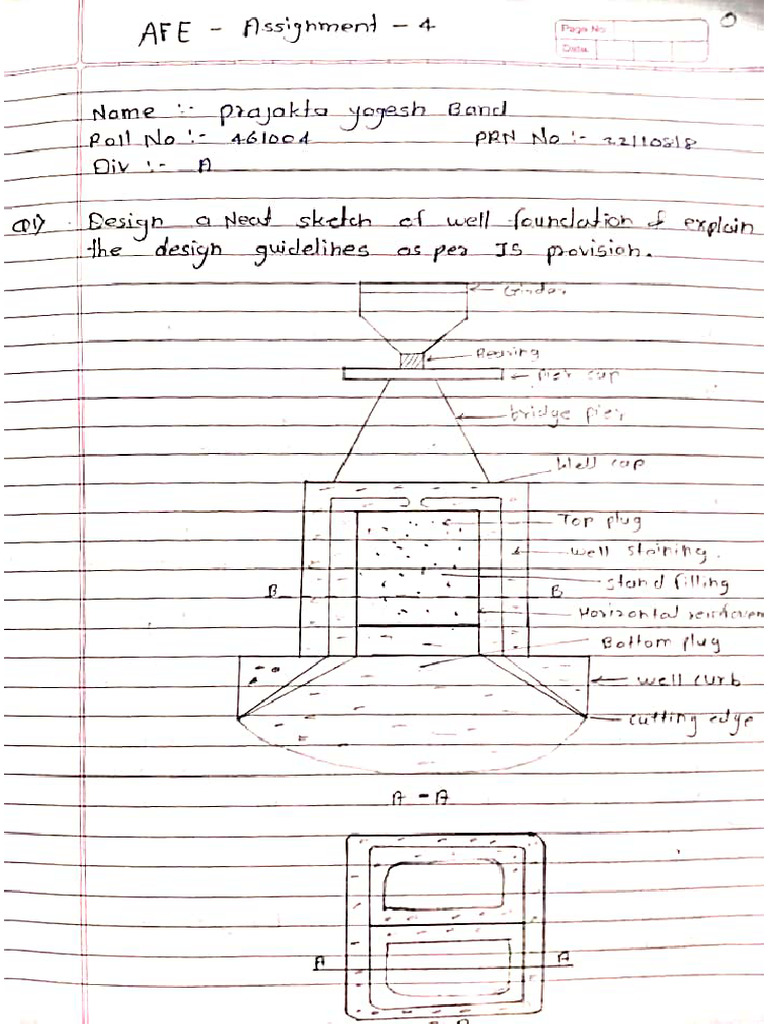 AFE - Assignment - 4
Page No
Date
Name :- Prajakta Yogesh Band
Roll No :- 461004 PRN No :- 22110818
Div :- A
Q1) Design a Neat sketch of well foundation & explain
the design guidelines as per IS provision.
Girder
Bearing
Pier cap
bridge pier
Well cap
Top plug
well staining.
stand filling
B B
Bottom plug
well curb
cutting edge
A - A
A A